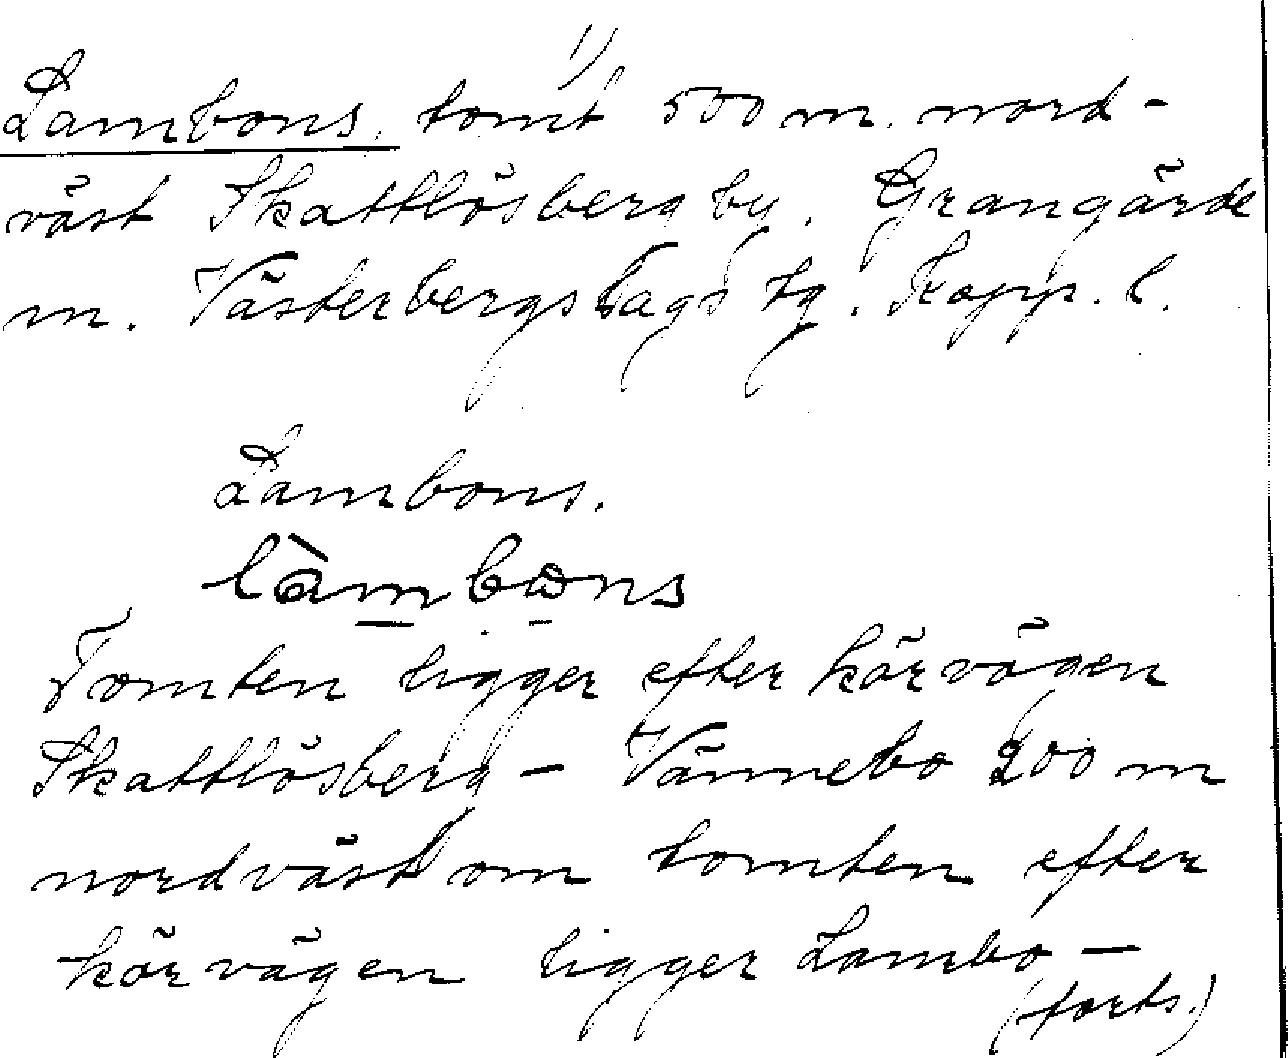 1)
Lambons, tomt 500 m. nord-
väst Skattlösberg by. Grangärde
m. Västerbergslags tg. Kopp. l.
Lambons.
làmbωns
Tomten ligger efter körvägen
Skattlösberg - Vännebo 200 m
nordväst om tomten efter
körvägen ligger Lambo-
(forts.)